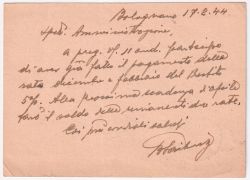 Bolognano 17.2.44
Sped. Amministrazione,
a preg. v/ 11 and. partecipo
di aver già fatto il pagamento delle
rate dicembre e febbraio del Prestito
5%. Alla prossima scadenza d'aprile
farò il saldo delle rimanenti due rate.
Coi più cordiali saluti